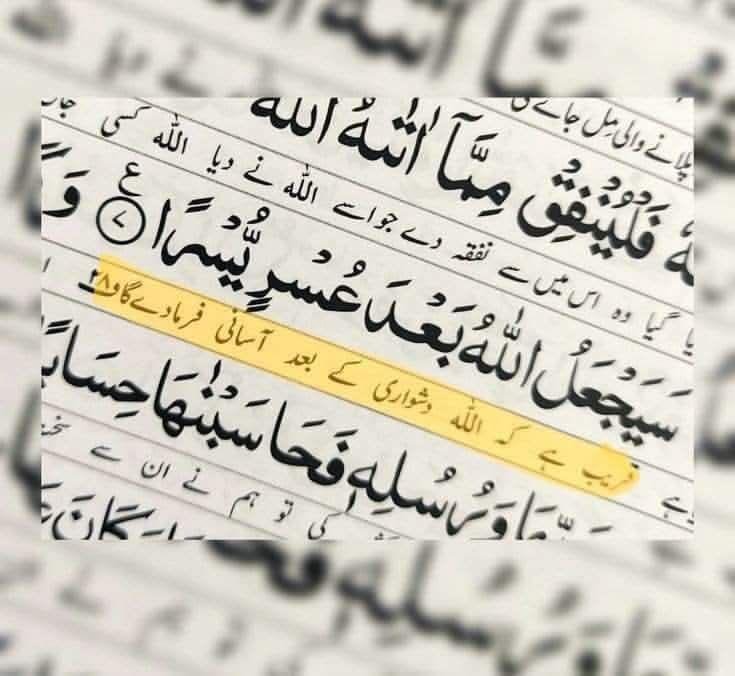 پلانے والی مل جائے گی
فَلْيُنْفِقْ مِمَّآ اٰتٰىهُ اللّٰهُ
گیا وہ اس میں سے نفقہ دے جو اسے اللہ نے دیا اللہ کسی
سَيَجْعَلُ اللّٰهُ بَعْدَ عُسْرٍ يُّسْرًا ۧ ۷
ہے قریب ہے کہ اللہ دشواری کے بعد آسانی فرما دے گا و۲۸
وَرُسُلِهٖ فَحَاسَبْنٰهَا حِسَابًا
کی تو ہم نے ان سے